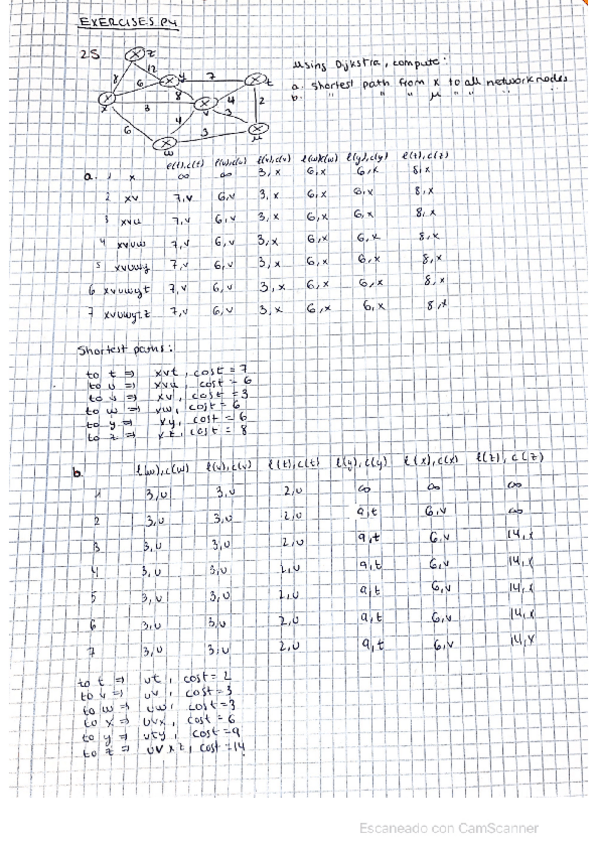 EXERCISES P4
25
z
8
12
6
y
7
t
x
8
4
2
3
v
6
4
3
3
w
u
Using Dijkstra, compute:
a. shortest path from x to all network nodes
b. " " " u " " " "
l(t),c(t) l(u),c(u) l(v),c(v) l(w),c(w) l(y),c(y) l(z),c(z)
a. 1 x ∞ ∞ 3,x 6,x 6,x 8,x
2 xv 7,v 6,v 3,x 6,x 6,x 8,x
3 xvu 7,v 6,v 3,x 6,x 6,x 8,x
4 xvuw 7,v 6,v 3,x 6,x 6,x 8,x
5 xvuwy 7,v 6,v 3,x 6,x 6,x 8,x
6 xvuwyt 7,v 6,v 3,x 6,x 6,x 8,x
7 xvuwytz 7,v 6,v 3,x 6,x 6,x 8,x
Shortest paths:
to t => xvt, cost = 7
to u => xvu, cost = 6
to v => xv, cost = 3
to w => xw, cost = 6
to y => xy, cost = 6
to z => xz, cost = 8
b. l(w),c(w) l(v),c(v) l(t),c(t) l(y),c(y) l(x),c(x) l(z),c(z)
1 3,u 3,u 2,u ∞ ∞ ∞
2 3,u 3,u 2,u 9,t 6,v ∞
3 3,u 3,u 2,u 9,t 6,v 14,x
4 3,u 3,u 2,u 9,t 6,v 14,x
5 3,u 3,u 2,u 9,t 6,v 14,x
6 3,u 3,u 2,u 9,t 6,v 14,x
7 3,u 3,u 2,u 9,t 6,v 14,x
to t => ut, cost = 2
to v => uv, cost = 3
to w => uw, cost = 3
to x => uvx, cost = 6
to y => uty, cost = 9
to z => uvxz, cost = 14
Escaneado con CamScanner